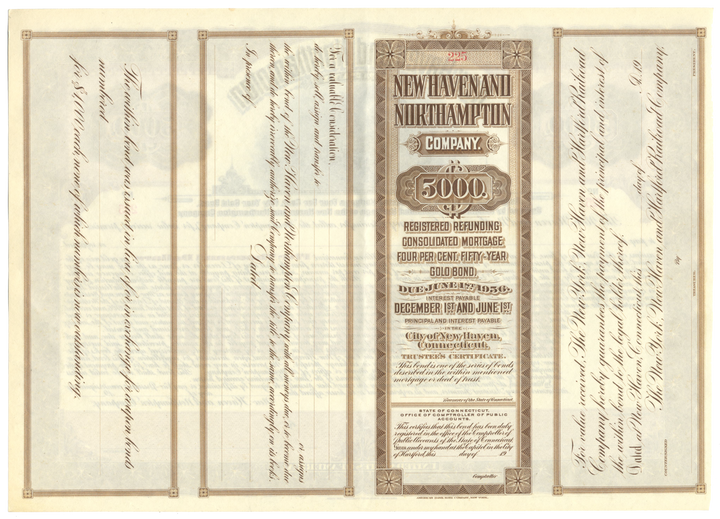 The within bond was issued in lieu of or in exchange for coupon bonds
numbered
for $1,000 each none of which numbers is now outstanding.
For a valuable Consideration,
do hereby sell, assign and transfer to
or assigns
the within bond of the New Haven and Northampton Company, with all moneys due, or to become due
thereon, and do hereby irrevocably authorize said Company to transfer the title to the same, accordingly on its books.
Dated
In presence of
225
NEW HAVEN AND
NORTHAMPTON
COMPANY.
5000.
REGISTERED REFUNDING
CONSOLIDATED MORTGAGE
FOUR PER CENT. FIFTY-YEAR
GOLD BOND.
DUE JUNE 1ST, 1956.
INTEREST PAYABLE
DECEMBER 1ST AND JUNE 1ST
PRINCIPAL AND INTEREST PAYABLE
IN THE
City of New Haven,
Connecticut.
TRUSTEE'S CERTIFICATE.
This bond is one of the series of bonds
described in the within mentioned
mortgage or deed of trust.
Treasurer of the State of Connecticut
STATE OF CONNECTICUT,
OFFICE OF COMPTROLLER OF PUBLIC
ACCOUNTS.
This certifies that this bond has been duly
registered in the office of the Comptroller of
Public Accounts of the State of Connecticut
Given under my hand at the Capitol in the City
of Hartford, this day of 19
Comptroller
For value received, The New York, New Haven and Hartford Railroad
Company hereby guarantees the payment of the principal and interest of
the within bond to the legal holder thereof.
Dated at New Haven, Connecticut, this day of A.D. 19
The New York, New Haven and Hartford Railroad Company,
By